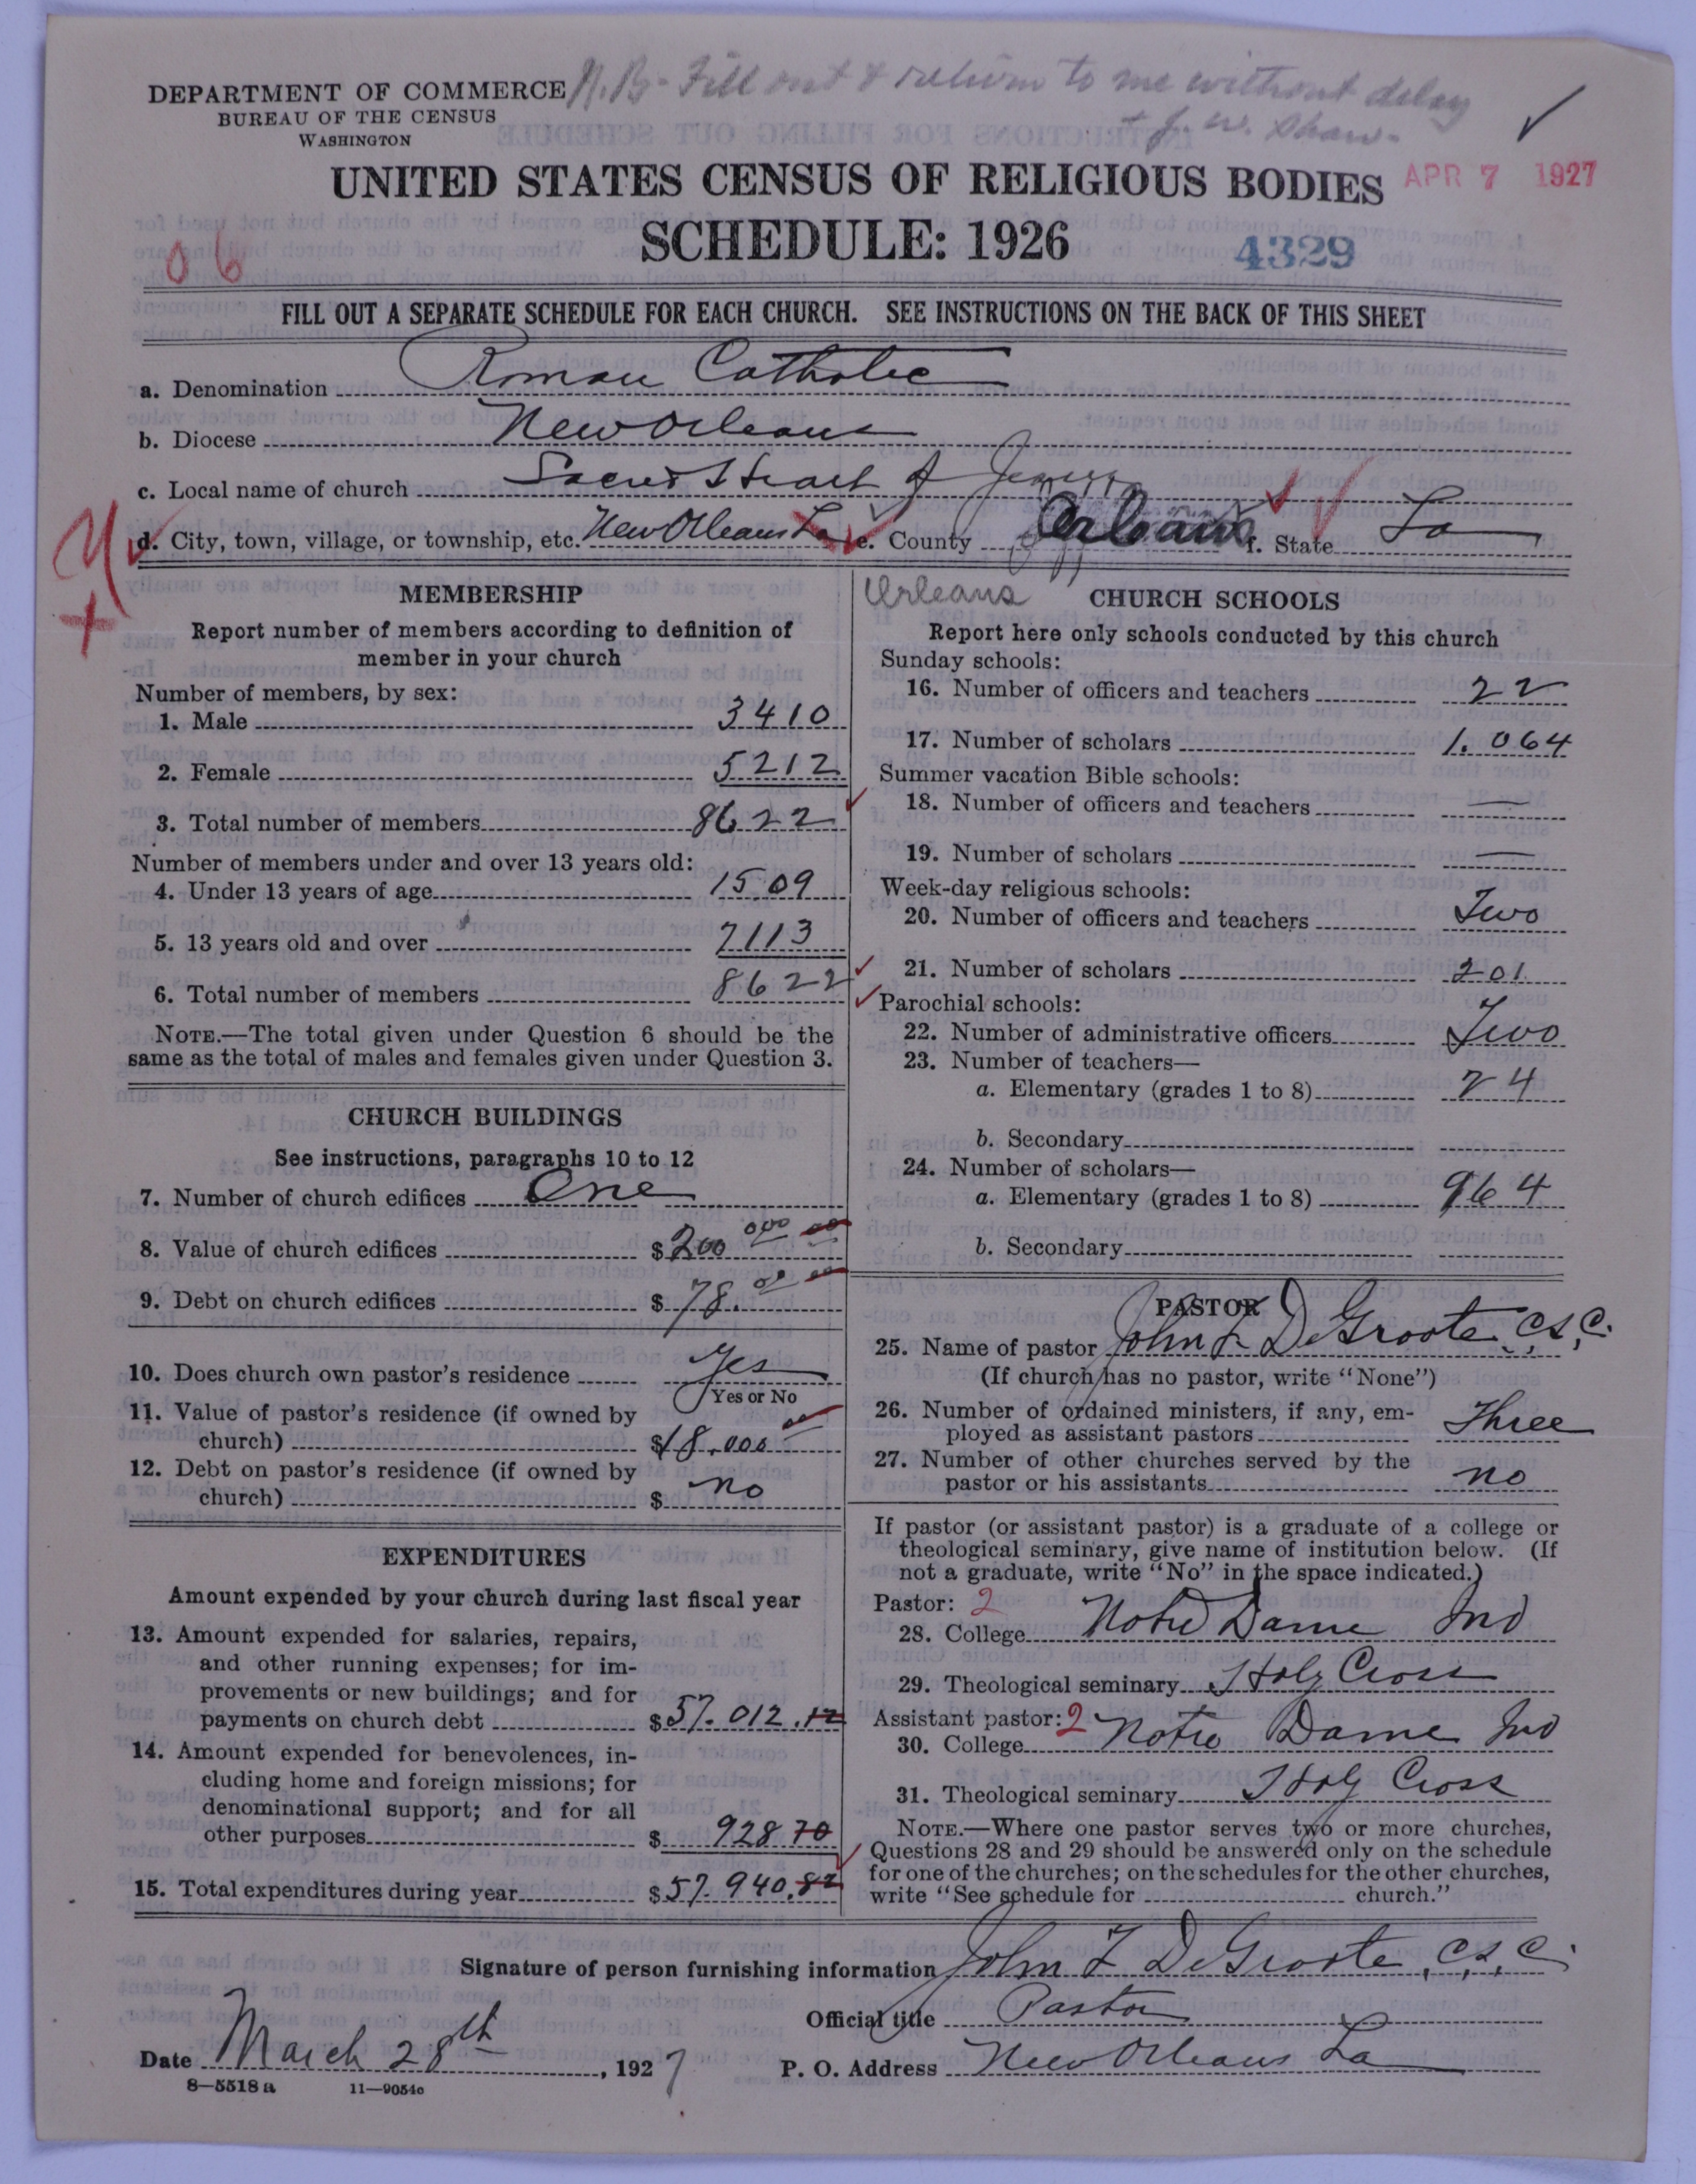 DEPARTMENT OF COMMERCE
BUREAU OF THE CENSUS
WASHINGTON
N.B- Fill out & return to me without delay
+ J. W. Shaw-
UNITED STATES CENSUS OF RELIGIOUS BODIES
APR 7 1927
SCHEDULE: 1926
4329
06
FILL OUT A SEPARATE SCHEDULE FOR EACH CHURCH. SEE INSTRUCTIONS ON THE BACK OF THIS SHEET
a. Denomination Roman Catholic
b. Diocese New Orleans
c. Local name of church Sacred Heart of Jesus
d. City, town, village, or township, etc. New Orleans La e. County Orleans f. State La
Orleans
MEMBERSHIP
Report number of members according to definition of
member in your church
Number of members, by sex:
1. Male 3410
2. Female 5212
3. Total number of members 8622
Number of members under and over 13 years old:
4. Under 13 years of age 1509
5. 13 years old and over 7113
6. Total number of members 8622
NOTE.—The total given under Question 6 should be the
same as the total of males and females given under Question 3.
CHURCH BUILDINGS
See instructions, paragraphs 10 to 12
7. Number of church edifices One
8. Value of church edifices $200 000 00
9. Debt on church edifices $78.00 00
10. Does church own pastor's residence Yes
Yes or No
11. Value of pastor's residence (if owned by
church) $18.000 00
12. Debt on pastor's residence (if owned by
church) $ no
EXPENDITURES
Amount expended by your church during last fiscal year
13. Amount expended for salaries, repairs,
and other running expenses; for im-
provements or new buildings; and for
payments on church debt $57.012.12
14. Amount expended for benevolences, in-
cluding home and foreign missions; for
denominational support; and for all
other purposes $928 70
15. Total expenditures during year $57.940.82
CHURCH SCHOOLS
Report here only schools conducted by this church
Sunday schools:
16. Number of officers and teachers 22
17. Number of scholars 1.064
Summer vacation Bible schools:
18. Number of officers and teachers —
19. Number of scholars —
Week-day religious schools:
20. Number of officers and teachers Two
21. Number of scholars 201
Parochial schools:
22. Number of administrative officers Two
23. Number of teachers—
a. Elementary (grades 1 to 8) 24
b. Secondary
24. Number of scholars—
a. Elementary (grades 1 to 8) 964
b. Secondary
PASTOR
25. Name of pastor John F. DeGroote C.S.C.
(If church has no pastor, write "None")
26. Number of ordained ministers, if any, em-
ployed as assistant pastors Three
27. Number of other churches served by the
pastor or his assistants no
If pastor (or assistant pastor) is a graduate of a college or
theological seminary, give name of institution below. (If
not a graduate, write "No" in the space indicated.)
Pastor: 2
28. College Notre Dame Ind
29. Theological seminary Holy Cross
Assistant pastor: 2
30. College Notre Dame Ind
31. Theological seminary Holy Cross
NOTE.—Where one pastor serves two or more churches,
Questions 28 and 29 should be answered only on the schedule
for one of the churches; on the schedules for the other churches,
write "See schedule for church."
Signature of person furnishing information John F. DeGroote, C.S.C.
Official title Pastor
Date March 28th, 1927 P. O. Address New Orleans La
8—5518 a 11—9054c